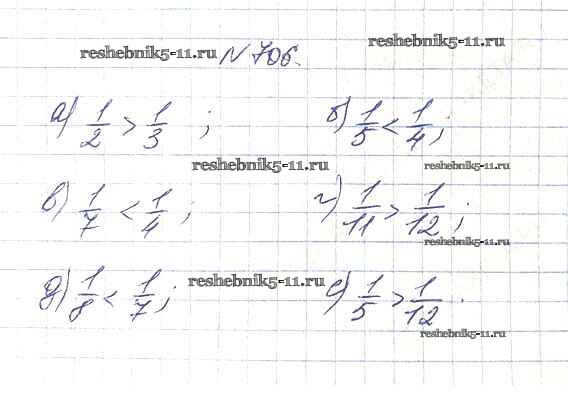 reshebnik5-11.ru № 706. reshebnik5-11.ru
а) 1/2 > 1/3 ; б) 1/5 < 1/4 ;
reshebnik5-11.ru reshebnik5-11.ru
в) 1/7 < 1/4 ; г) 1/11 > 1/12 ;
reshebnik5-11.ru
д) 1/8 < 1/7 ; reshebnik5-11.ru е) 1/5 > 1/12 .
reshebnik5-11.ru